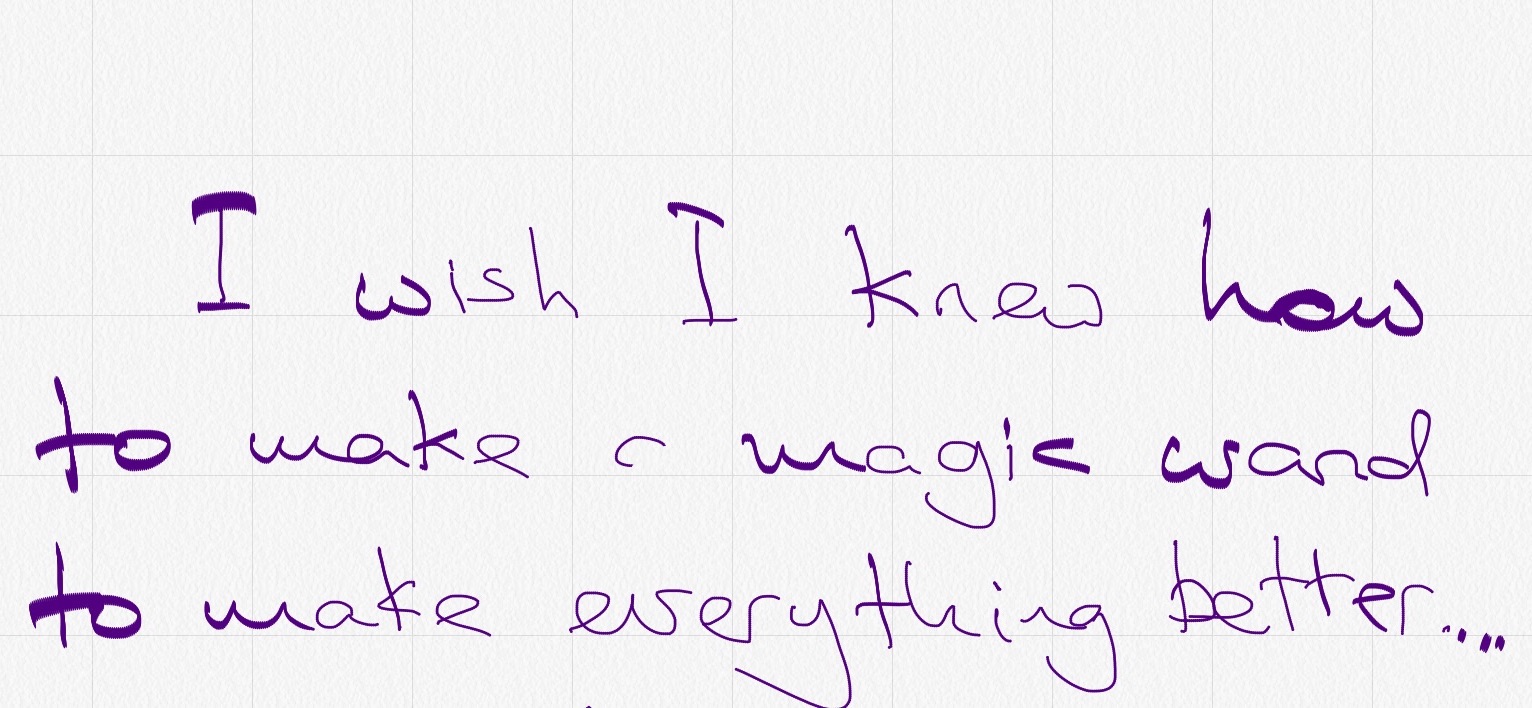 I wish I knew how
to make a magic wand
to make everything better.....